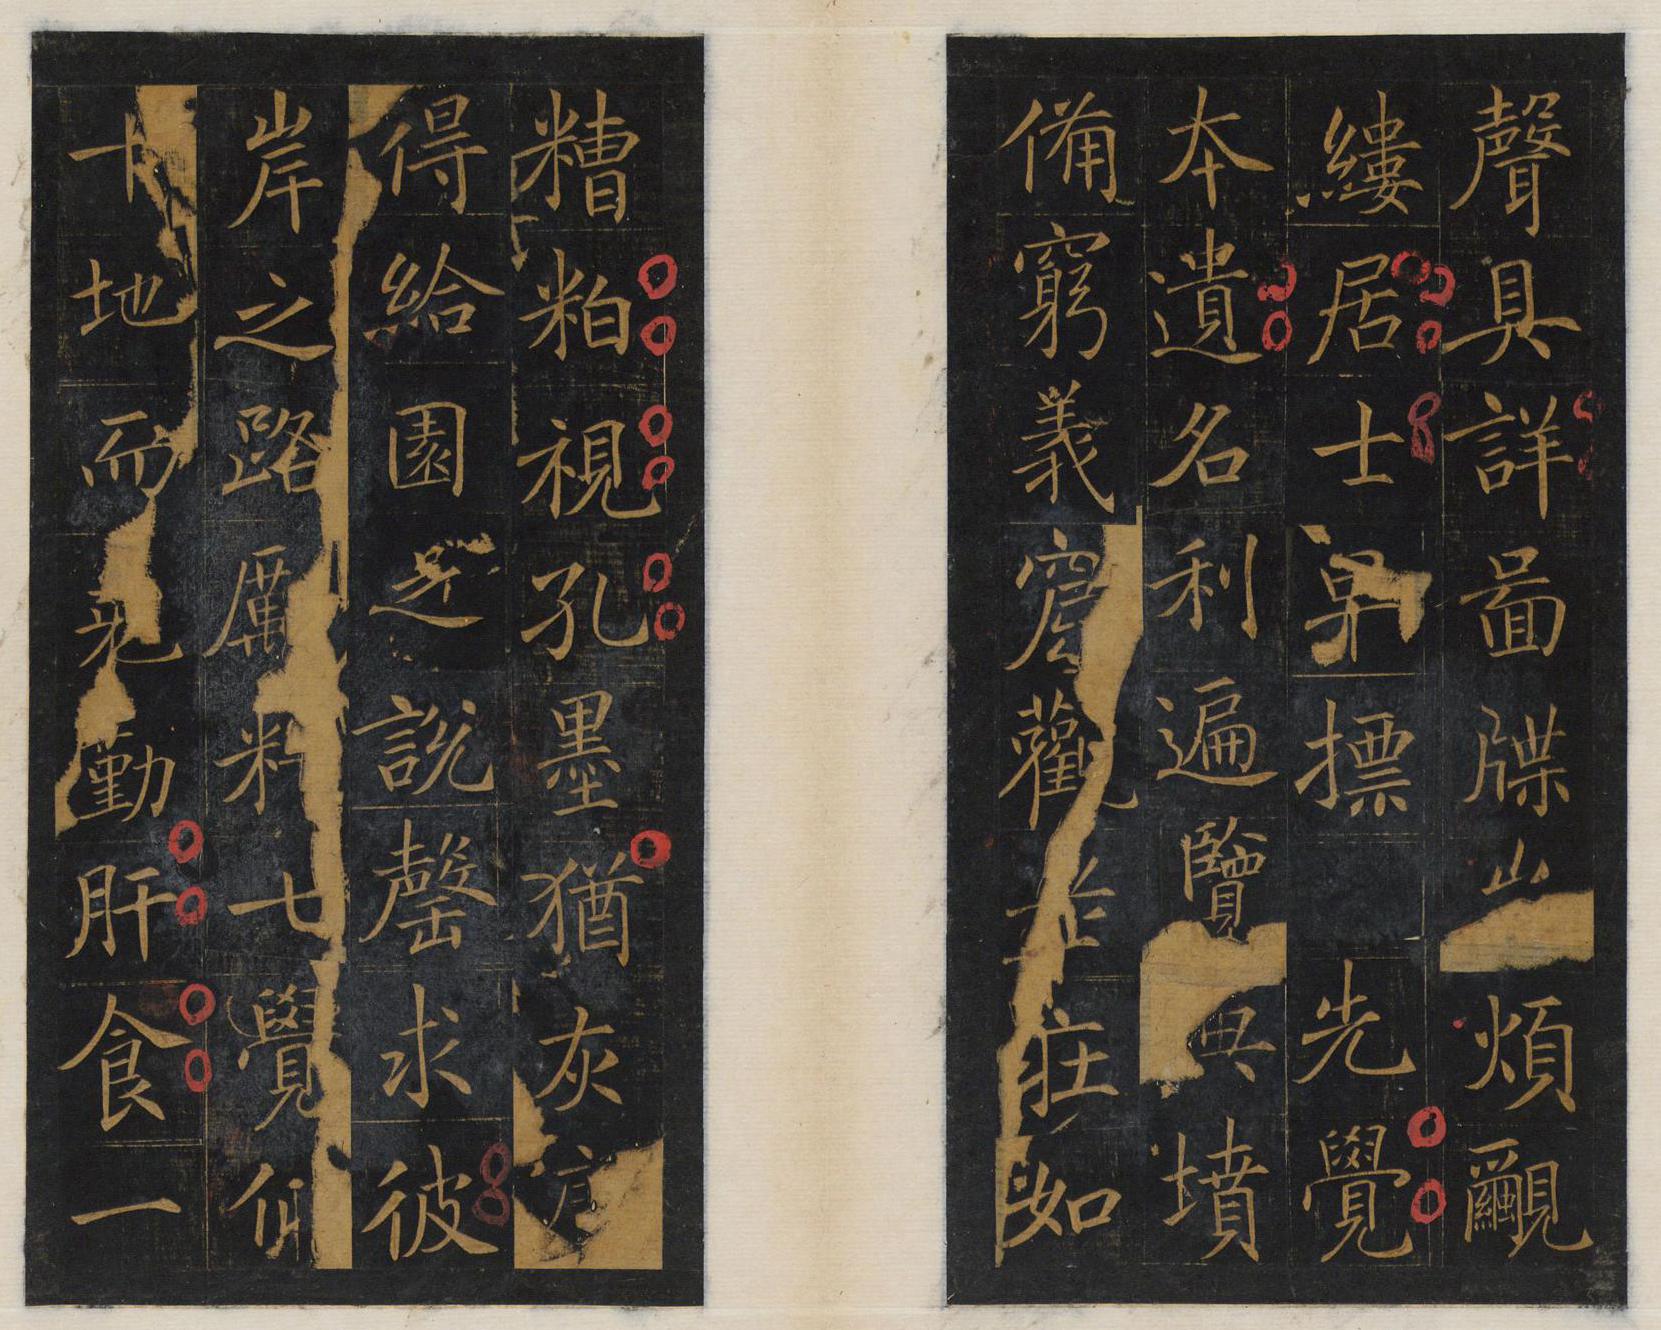 聲具詳啚牒豈煩覼
縷居士早標先覺
本遺名利遍覽典墳
備窮義窟觀莊如
糟粕視孔墨猶灰塵
得給園之說罄求彼
岸之路厲精七覺仰
十地而克勤肝食一